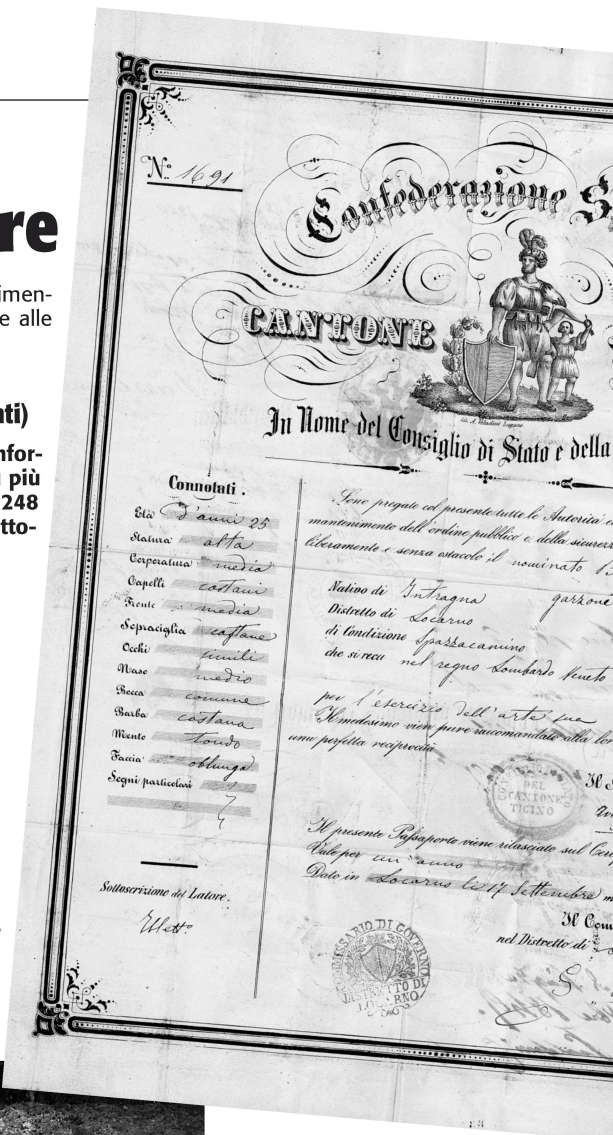 re
imen-
e alle
ti)
nfor-
più
248
tto-
N.º 1691
Confederazione S
CANTONE
lit. A. Veladini Lugano
In Nome del Consiglio di Stato e della
Connotati.
Età d'anni 25
Statura alta
Corporatura media
Capelli castani
Fronte media
Sopraciglia castane
Occhi simili
Naso medio
Bocca comune
Barba castana
Mento tondo
Faccia oblunga
Segni particolari
Sottoscrizione del Latore.
Illett.º
Sono pregate col presente tutte le Autorità
mantenimento dell'ordine pubblico e della sicurezz
liberamente e senza ostacolo il nominato
Nativo di Intragna garzone
Distretto di Locarno
di Condizione Spazzacamino
che si reca nel regno Lombardo Veneto
per l'esercizio dell'arte sua
Il medesimo vien pure raccomandato alla lor
una perfetta reciprocità
Il
DEL CANTONE TICINO
Il presente Passaporto viene rilasciato sul
Vale per un anno
Dato in Locarno li 17 Settembre m
Il Com
nel Distretto di
COMMISSARIO DI GOVERNO
DISTRETTO DI LOCARNO